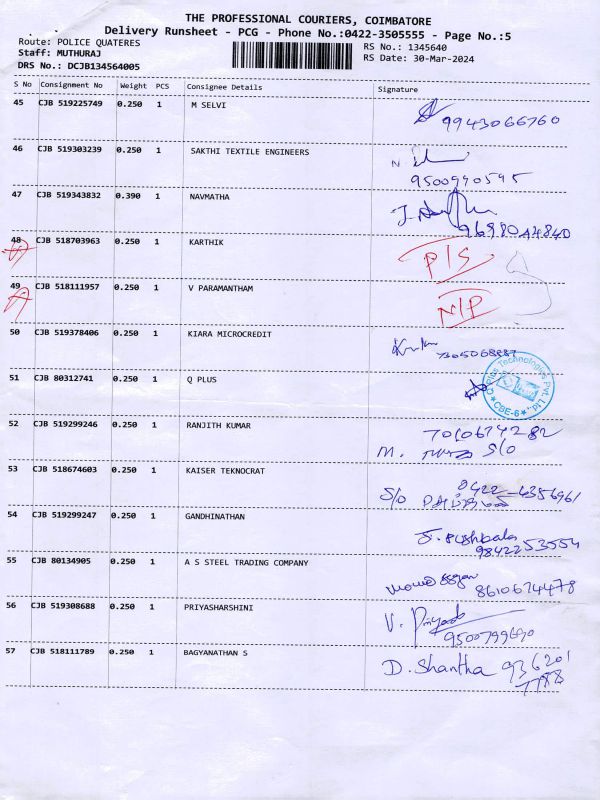 THE PROFESSIONAL COURIERS, COIMBATORE
Delivery Runsheet - PCG - Phone No.:0422-3505555 - Page No.:5
Route: POLICE QUATERES
Staff: MUTHURAJ
DRS No.: DCJB134564005
RS No.: 1345640
RS Date: 30-Mar-2024
S No Consignment No Weight PCS Consignee Details Signature
45 CJB 519225749 0.250 1 M SELVI
9943066760
46 CJB 519303239 0.250 1 SAKTHI TEXTILE ENGINEERS
N
9500990595
47 CJB 519343832 0.390 1 NAVMATHA
J.
48 CJB 518703963 0.250 1 KARTHIK
P/S
49 CJB 518111957 0.250 1 V PARAMANTHAM
N/P
50 CJB 519378406 0.250 1 KIARA MICROCREDIT
51 CJB 80312741 0.250 1 Q PLUS
Technologies Pvt. Ltd.,
CBE-6
52 CJB 519299246 0.250 1 RANJITH KUMAR
7010674282
M. S/O
53 CJB 518674603 0.250 1 KAISER TEKNOCRAT
S/O
54 CJB 519299247 0.250 1 GANDHINATHAN
9842253554
55 CJB 80134905 0.250 1 A S STEEL TRADING COMPANY
8610674478
56 CJB 519308688 0.250 1 PRIYASHARSHINI
V.
9500799690
57 CJB 518111789 0.250 1 BAGYANATHAN S
D. Shantha 936201